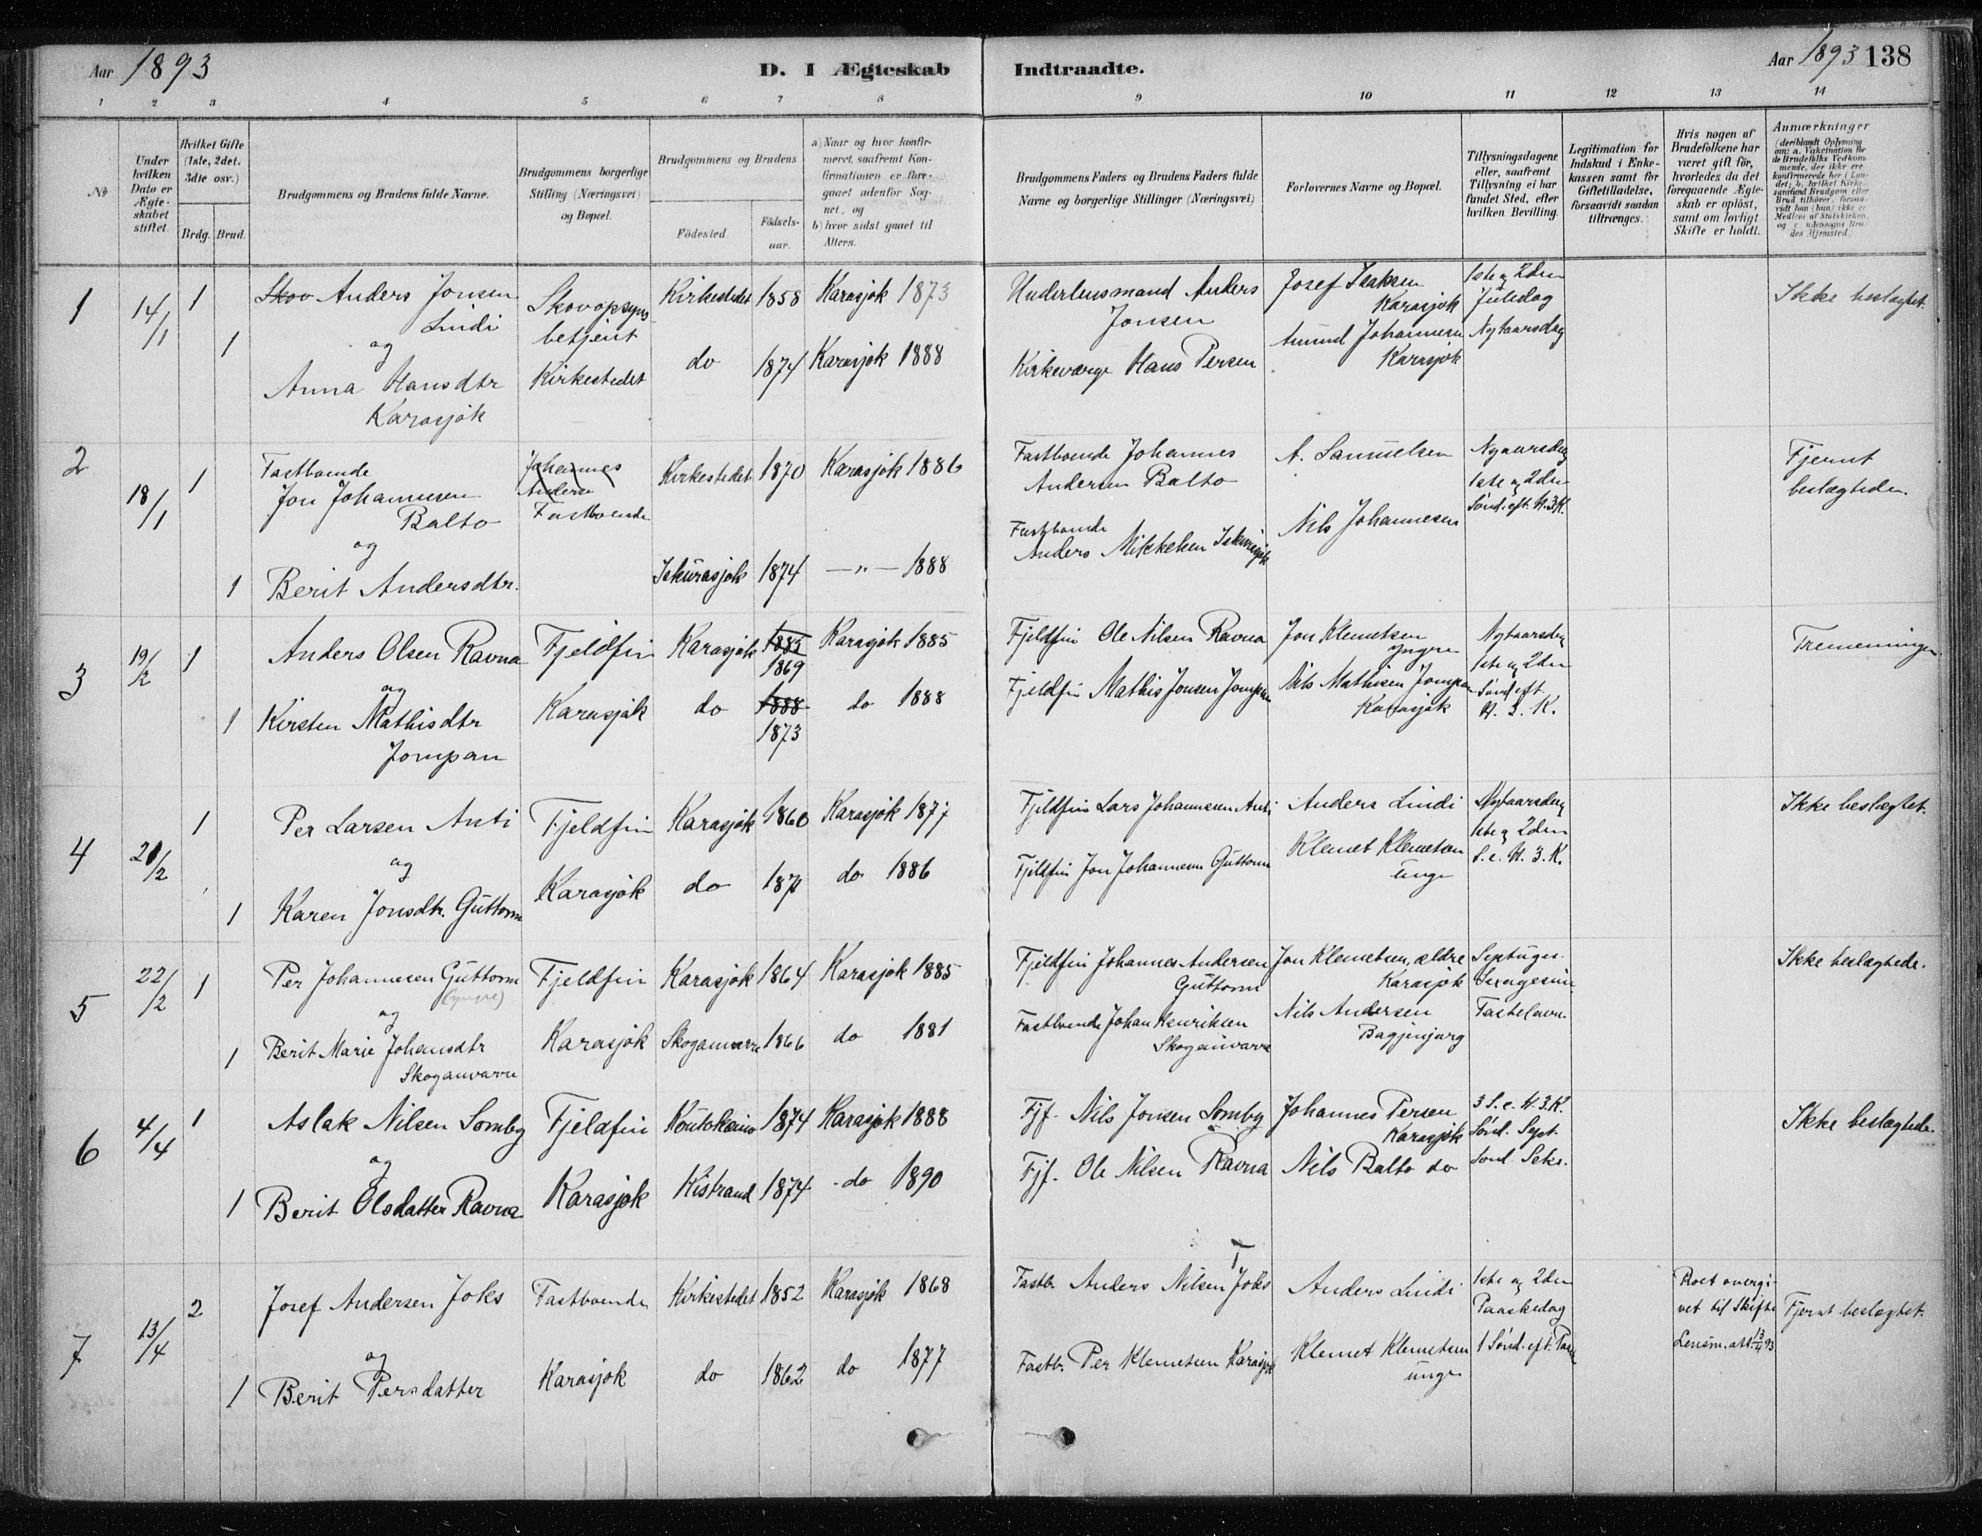 Aar 1893
D. I Ægteskab Indtraadte.
Aar 1893 138
1 2 3 4 5 6 7 8 9 10 11 12 13 14
No
Under hvilken Dato er Ægteskabet stiftet.
Hvilket Gifte (1ste, 2det. 3die osv.)
Brdg. Brud.
Brudgommens og Brudens fulde Navne.
Brudgommens borgerlige Stilling (Næringsvei) og Bopæl.
Brudgommens og Brudens
Födested.
Födselsaar.
a) Naar og hvor konfirmeret, saafremt Konfirmationen er foregaaet udenfor Sognet, og
b) hvor sidst gaaet til Alters.
Brudgommens Faders og Brudens Faders fulde Navne og borgerlige Stillinger (Næringsvei)
Forlovernes Navne og Bopæl.
Tillysningsdagene eller, saafremt Tillysning ei har fundet Sted, efter hvilken Bevilling.
Legitimation for Indskud i Enkekassen samt for Giftetilladelse, forsaavidt saadan tiltrænges.
Hvis nogen af Brudefolkene har været gift för, hvorledes da det foregaaende Ægteskab er oplöst, samt om lovligt Skifte er holdt.
Anmærkninger
1 14/1 1 Skov Anders Jonsen Lindi
og
1 Anna Hansdtr Karasjok
Skovopsynsbetjent Kirkestedet
Kirkestedet 1858 Karasjok 1873
do 1874 Karasjok 1888
Underlensmand Anders Jonsen
Kirkeværge Hans Persen
Josef Isaksen Karasjok
Amund Johannesen Karasjok
1ste og 2den Juledag
Nytaarsdag
Ikke beslægtet.
2 18/1 1 Fastboende Jon Johannesen Balto
og
1 Berit Andersdtr.
Johannes Anderse
Fastboende
Kirkestedet 1870 Karasjok 1886
Iskurasjok 1874 — „ — 1888
Fastboende Johannes Andersen Balto
Fastboende Anders Mikkelsen Iskurasjok
A. Samuelsen
Nils Johannesen
Nytaarsdag
1ste og 2den
Sönd. eft. H.3.K.
Fjernt beslægtede.
3 19/2 1 Anders Olsen Ravna
og
1 Kirsten Mathisdtr Jompan
Fjeldfin Karasjok
Karasjok 1885 1869 Karasjok 1885
do 1888 1873 do 1888
Fjeldfin Ole Nilsen Ravna
Fjeldfin Mathis Jonsen Jompan
Jon Klemetsen yngre
Nils Mathisen Jompan Karasjok
Nytaarsdag
1ste og 2den
Sönd eft.
H. 3. K.
Tremenninger
4 21/2 1 Per Larsen Anti
og
1 Karen Jonsdtr. Guttorm
Fjeldfin Karasjok
Karasjok 1860 Karasjok 1877
do 1871 do 1886
Fjeldfin Lars Johannesen Anti
Fjeldfin Jon Johannesen Guttorm
Anders Lindi
Klemet Klemetsen unge
Nytaarsdag
1ste og 2den
S. e. H. 3. K.
Ikke beslægtet.
5 22/2 1 Per Johannesen Guttorm
(yngre)
og
1 Berit Marie Johansdtr Skoganvarre
Fjeldfin Karasjok
Karasjok 1864 Karasjok 1885
Skoganvarre 1866 do 1881
Fjeldfin Johannes Andersen Guttorm
Fastboende Johan Henriksen Skoganvarre
Jon Klemetsen, ældre Karasjok
Nils Andersen
Septuges.
Fastelavn.
Ikke beslægtede.
6 4/4 1 Aslak Nilsen Somby
og
1 Berit Olsdatter Ravna
Fjeldfin Karasjok
Koutokeino 1874 Karasjok 1888
Kistrand 1874 do 1890
Fjf. Nils Jonsen Somby
Fjf. Ole Nilsen Ravna
Johannes Persen Karasjok
Nils Balto do
3 S. e. H. 3. K.
Sönd. Sept.
Sönd. Seks.
Ikke beslægtede.
7 13/4 2 Josef Andersen Joks
og
1 Berit Persdatter
Fastboende Karasjok
Kirkestedet 1852 Karasjok 1868
do 1862 do 1877
Fastb. Anders Nilsen Joks
Fastb. Per Klemetsen Karasjok
Anders Lindi
Klemet Klemetsen unge
1ste og 2den Paaskedag
1 Sönd. eft. Paaske
Boet overgivet til Skifte
Lensm. att. 13/4 93
Fjernt beslægtet.